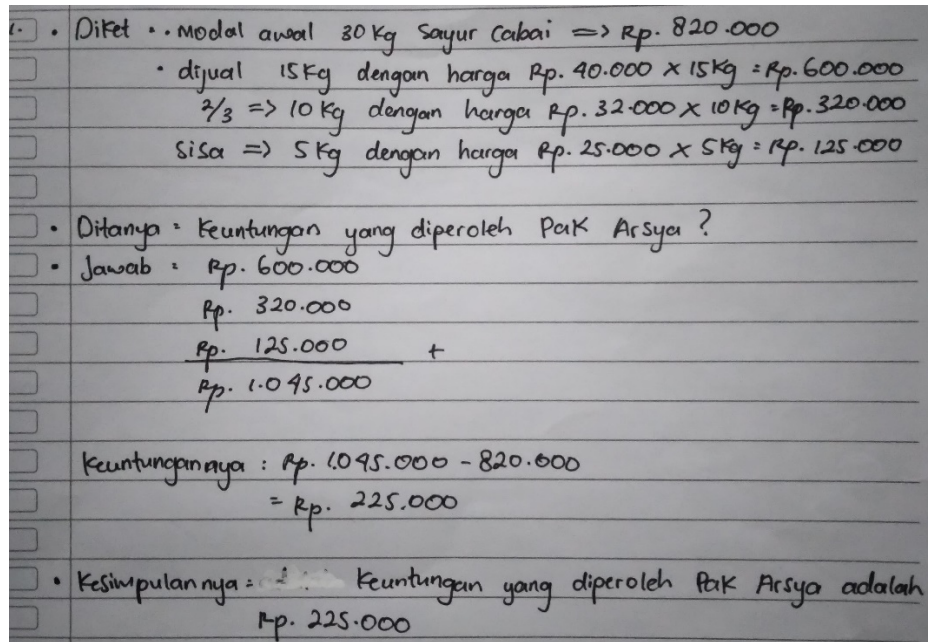 1. • Diket • • Modal awal 30 Kg Sayur Cabai => Rp. 820.000
• dijual 15 Kg dengan harga Rp. 40.000 x 15 Kg = Rp. 600.000
2/3 => 10 Kg dengan harga Rp. 32.000 x 10 Kg = Rp. 320.000
Sisa => 5 Kg dengan harga Rp. 25.000 x 5 Kg = Rp. 125.000
• Ditanya = Keuntungan yang diperoleh Pak Arsya ?
• Jawab : Rp. 600.000
Rp. 320.000
Rp. 125.000 +
Rp. 1.045.000
Keuntungannya : Rp. 1.045.000 - 820.000
= Rp. 225.000
• Kesimpulannya = Keuntungan yang diperoleh Pak Arsya adalah
Rp. 225.000